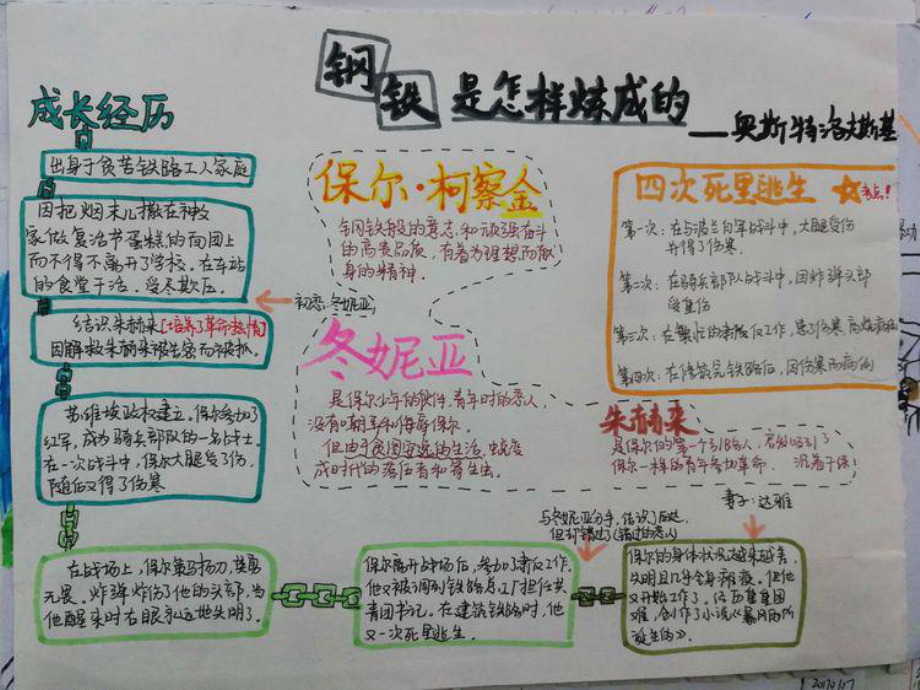 钢铁是怎样炼成的
——奥斯特洛夫斯基
成长经历
出身于贫苦铁路工人家庭
因把烟末儿撒在神父
家做复活节蛋糕的面团上
而不得不离开了学校。在车站
的食堂干活,受尽欺压。
初恋:冬妮亚
结识朱赫来[培养了革命热情]
因解救朱赫来被告密而被抓。
苏维埃政权建立,保尔参加了
红军,成为骑兵部队的一名战士。
在一次战斗中,保尔大腿受了伤,
随后又得了伤寒
在战场上,保尔策马扬刀,英勇
无畏。炸弹炸伤了他的头部,当
他醒来时右眼永远地失明了。
保尔·柯察金
钢铁般的意志,和顽强奋斗
的高贵品质,有着为理想而献
身的精神。
冬妮亚
是保尔少年的伙伴,青年时的恋人,
没有嘲弄和侮辱保尔。
但由于贪图安逸的生活,蜕变
成时代的落后者和寄生虫
四次死里逃生
考点!
第一次:在与波兰白军战斗中,大腿受伤
并得了伤寒
第二次:在骑兵部队战斗中,因炸弹头部
受重伤
第三次:在繁忙的肃反工作,患了伤寒,
第四次:在修筑完铁路后,因伤寒而病
朱赫来
是保尔的第一个引路人,
保尔一样的青年参加革命。
妻子:达雅
与冬妮亚分手,结识了丽达,
但却错过了(错过的恋人)
保尔离开战场后,参加了肃反工作。
他又被调到铁路总工厂担任共
青团书记。在建筑铁路时,他
又一次死里逃生。
保尔的身体状况越来越差,
失明且几乎全身瘫痪。但他
又开始工作了。经历重重困
难,创作了小说《暴风雨所
诞生的》。